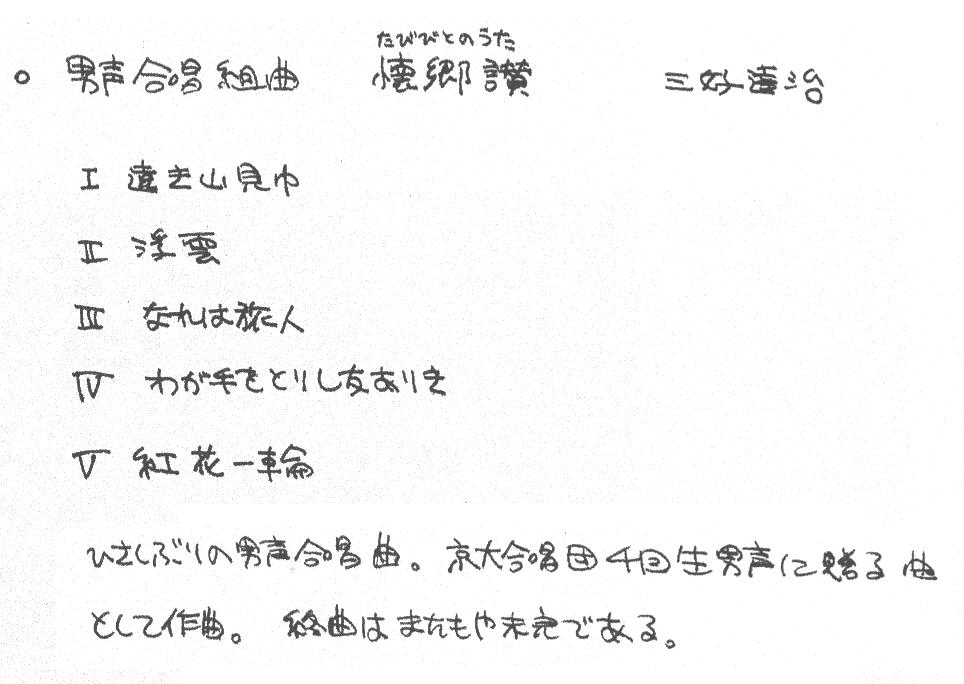 たびびとのうた
○ 男声合唱組曲 懐郷讃 三好達治
I 遠き山見ゆ
II 浮雲
III なれは旅人
IV わが手をとりし友ありき
V 紅花一輪
ひさしぶりの男声合唱曲。京大合唱団4回生男声に贈る曲
として作曲。 終曲はまたもや未完である。